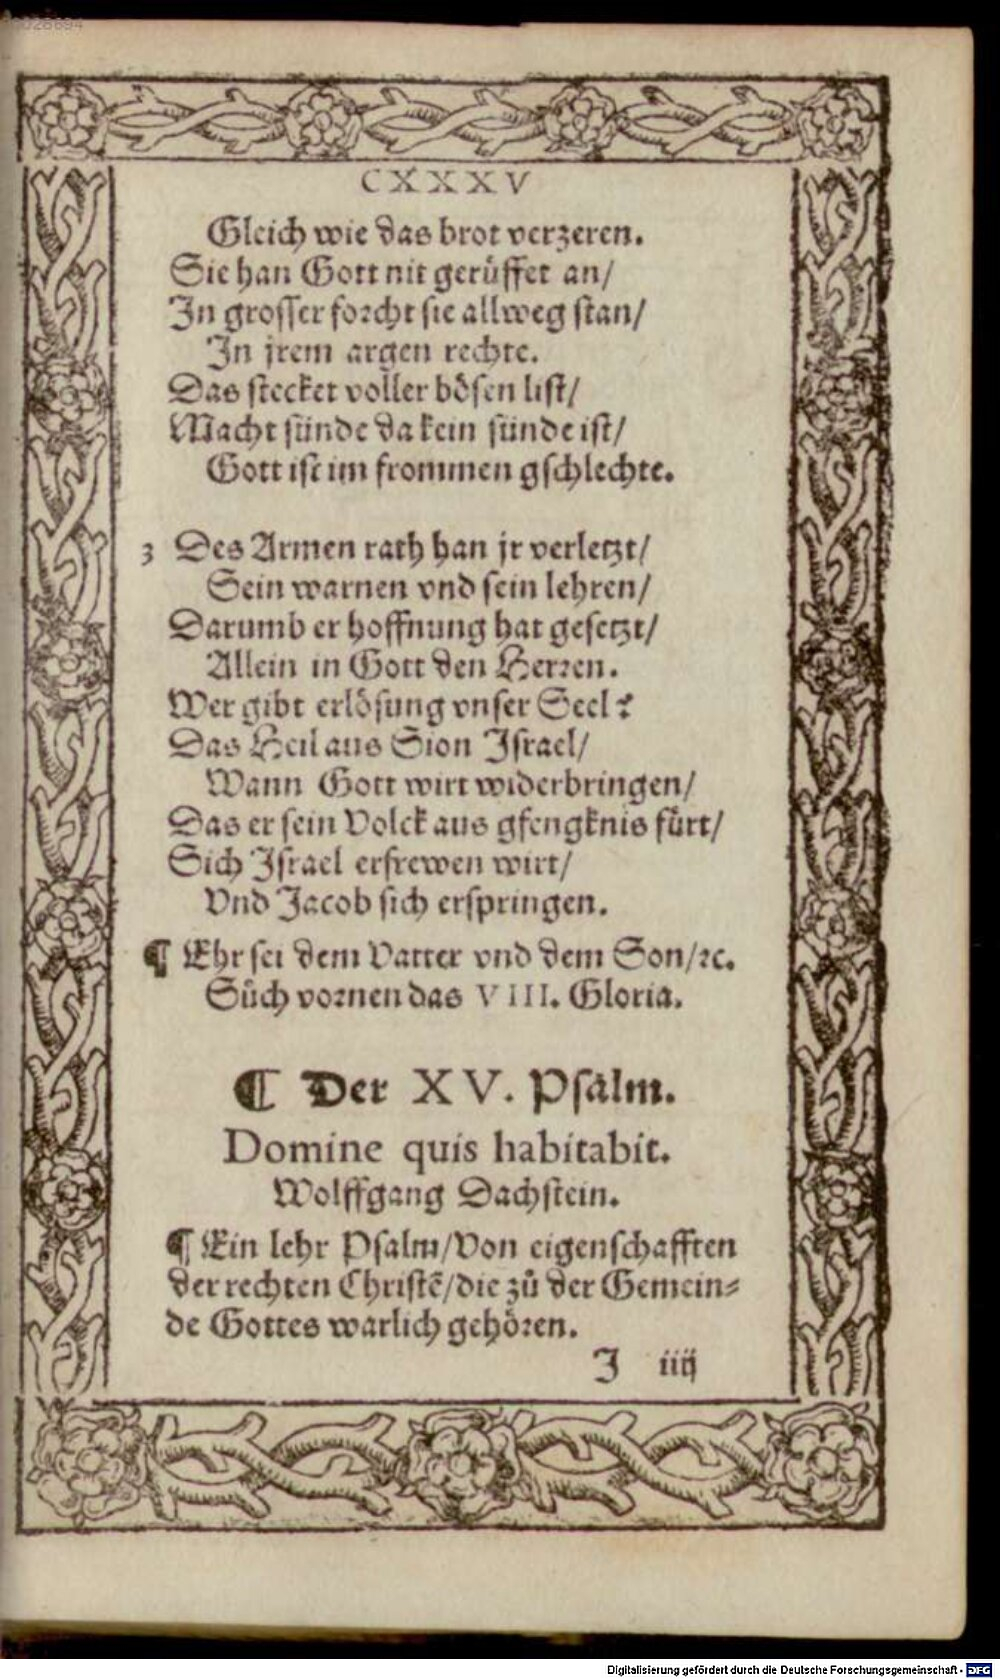 CXXXV
Gleich wie das brot verzeren.
Sie han Gott nit gerüffet an/
In grosser forcht sie allweg stan/
In jrem argen rechte.
Das stecket voller bösen list/
Macht sünde da kein sünde ist/
Gott ist im frommen gschlechte.
3 Des Armen rath han jr verletzt/
Sein warnen vnd sein lehren/
Darumb er hoffnung hat gesetzt/
Allein in Gott den Herren.
Wer gibt erlösung vnser Seel?
Das Heil aus Sion Israel/
Wann Gott wirt widerbringen/
Das er sein Volck aus gfengknis fürt/
Sich Israel erfrewen wirt/
Vnd Jacob sich erspringen.
¶ Ehr sei dem Vatter vnd dem Son/ꝛc.
Sůch vornen das VIII. Gloria.
¶ Der XV. Psalm.
Domine quis habitabit.
Wolffgang Dachstein.
¶ Ein lehr Psalm/Von eigenschafften
der rechten Christē/die zů der Gemein⸗
de Gottes warlich gehören.
J iiij
Digitalisierung gefördert durch die Deutsche Forschungsgemeinschaft - DFG